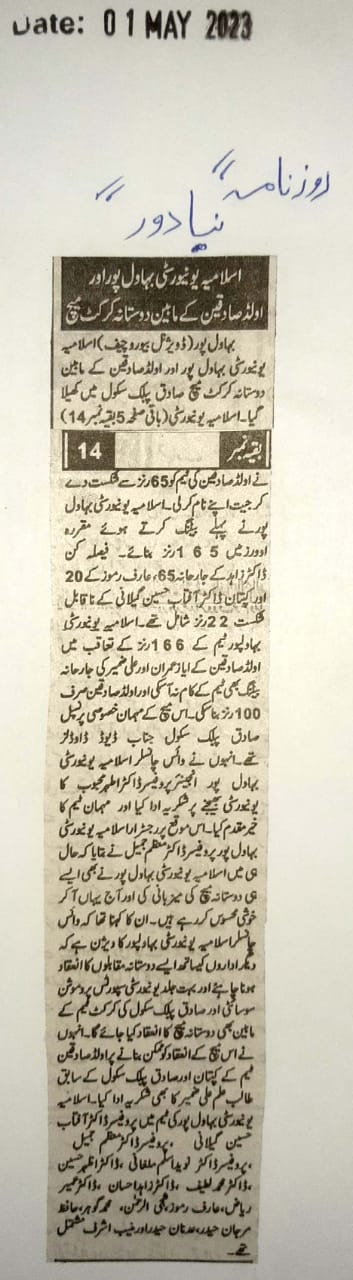 Date: 01 MAY 2023
روزنامہ "
نیا دور "
اسلامیہ یونیورسٹی بہاول پور اور
اولڈ صادقین کے مابین دوستانہ کرکٹ میچ
بہاول پور (ڈویژنل بیورو چیف) اسلامیہ
یونیورسٹی بہاول پور اور اولڈ صادقین کے مابین
دوستانہ کرکٹ میچ صادق پبلک سکول میں کھیلا
گیا۔ اسلامیہ یونیورسٹی (باقی صفحہ 5 بقیہ نمبر 14)
بقیہ نمبر 14
نے اولڈ صادقین کی ٹیم کو 65 رنز سے شکست دے
کر جیت اپنے نام کر لی۔ اسلامیہ یونیورسٹی بہاول
پور نے پہلے بیٹنگ کرتے ہوئے مقررہ
اوورز میں 165 رنز بنائے۔ فیصلہ کن
ڈاکٹر زاہد کے جارحانہ 65، عارف رموز کے 20
اور کپتان ڈاکٹر آفتاب حسین گیلانی کے ناقابل
شکست 22 رنز شامل تھے۔ اسلامیہ یونیورسٹی
بہاولپور ٹیم کے 166 رنز کے تعاقب میں
اولڈ صادقین کے ایاز عمران اور علی ضمیر کی جارحانہ
بیٹنگ بھی ٹیم کے کام نہ آسکی اور اولڈ صادقین صرف
100 رنز بنا سکی۔ اس میچ کے مہمان خصوصی پرنسپل
صادق پبلک سکول جناب ڈیوڈ ڈاوڈلز
تھے۔ انہوں نے وائس چانسلر اسلامیہ یونیورسٹی
بہاول پور انجینئر پروفیسر ڈاکٹر اطہر محبوب کا
یونیورسٹی ٹیم بھیجنے پر شکریہ ادا کیا اور مہمان ٹیم کا
خیر مقدم کیا۔ اس موقع پر رجسٹرار اسلامیہ یونیورسٹی
بہاول پور پروفیسر ڈاکٹر معظم جمیل نے بتایا کہ حال
ہی میں اسلامیہ یونیورسٹی بہاول پور نے بھی ایسے
ہی دوستانہ میچ کی میزبانی کی اور آج یہاں آ کر
خوشی محسوس کر رہے ہیں۔ ان کا کہنا تھا کہ وائس
چانسلر اسلامیہ یونیورسٹی بہاولپور کا ویژن ہے کہ
دیگر اداروں کیساتھ ایسے دوستانہ مقابلوں کا انعقاد
ہونا چاہئے اور بہت جلد یونیورسٹی سپورٹس پروموشن
سوسائٹی اور صادق پبلک سکول کی کرکٹ ٹیم کے
مابین بھی دوستانہ میچ کا انعقاد کیا جائے گا۔ انہوں
نے اس میچ کے انعقاد کو ممکن بنانے پر اولڈ صادقین
ٹیم کے کپتان اور صادق پبلک سکول کے سابق
طالب علم علی ضمیر کا بھی شکریہ ادا کیا۔ اسلامیہ
یونیورسٹی بہاول پور کی ٹیم میں پروفیسر ڈاکٹر آفتاب
حسین گیلانی ، پروفیسر ڈاکٹر معظم جمیل
، پروفیسر ڈاکٹر نوید اسلم ملغانی ، ڈاکٹر اظہر حسین
، ڈاکٹر محمد لطیف ، ڈاکٹر زاہد احسان ، ڈاکٹر عمیر
ریاض، عارف رموز، الرحمن، محمد گوہر، حافظ
مرجان حیدر، عدنان حیدر اور منیب اشرف مشتمل
تھے۔